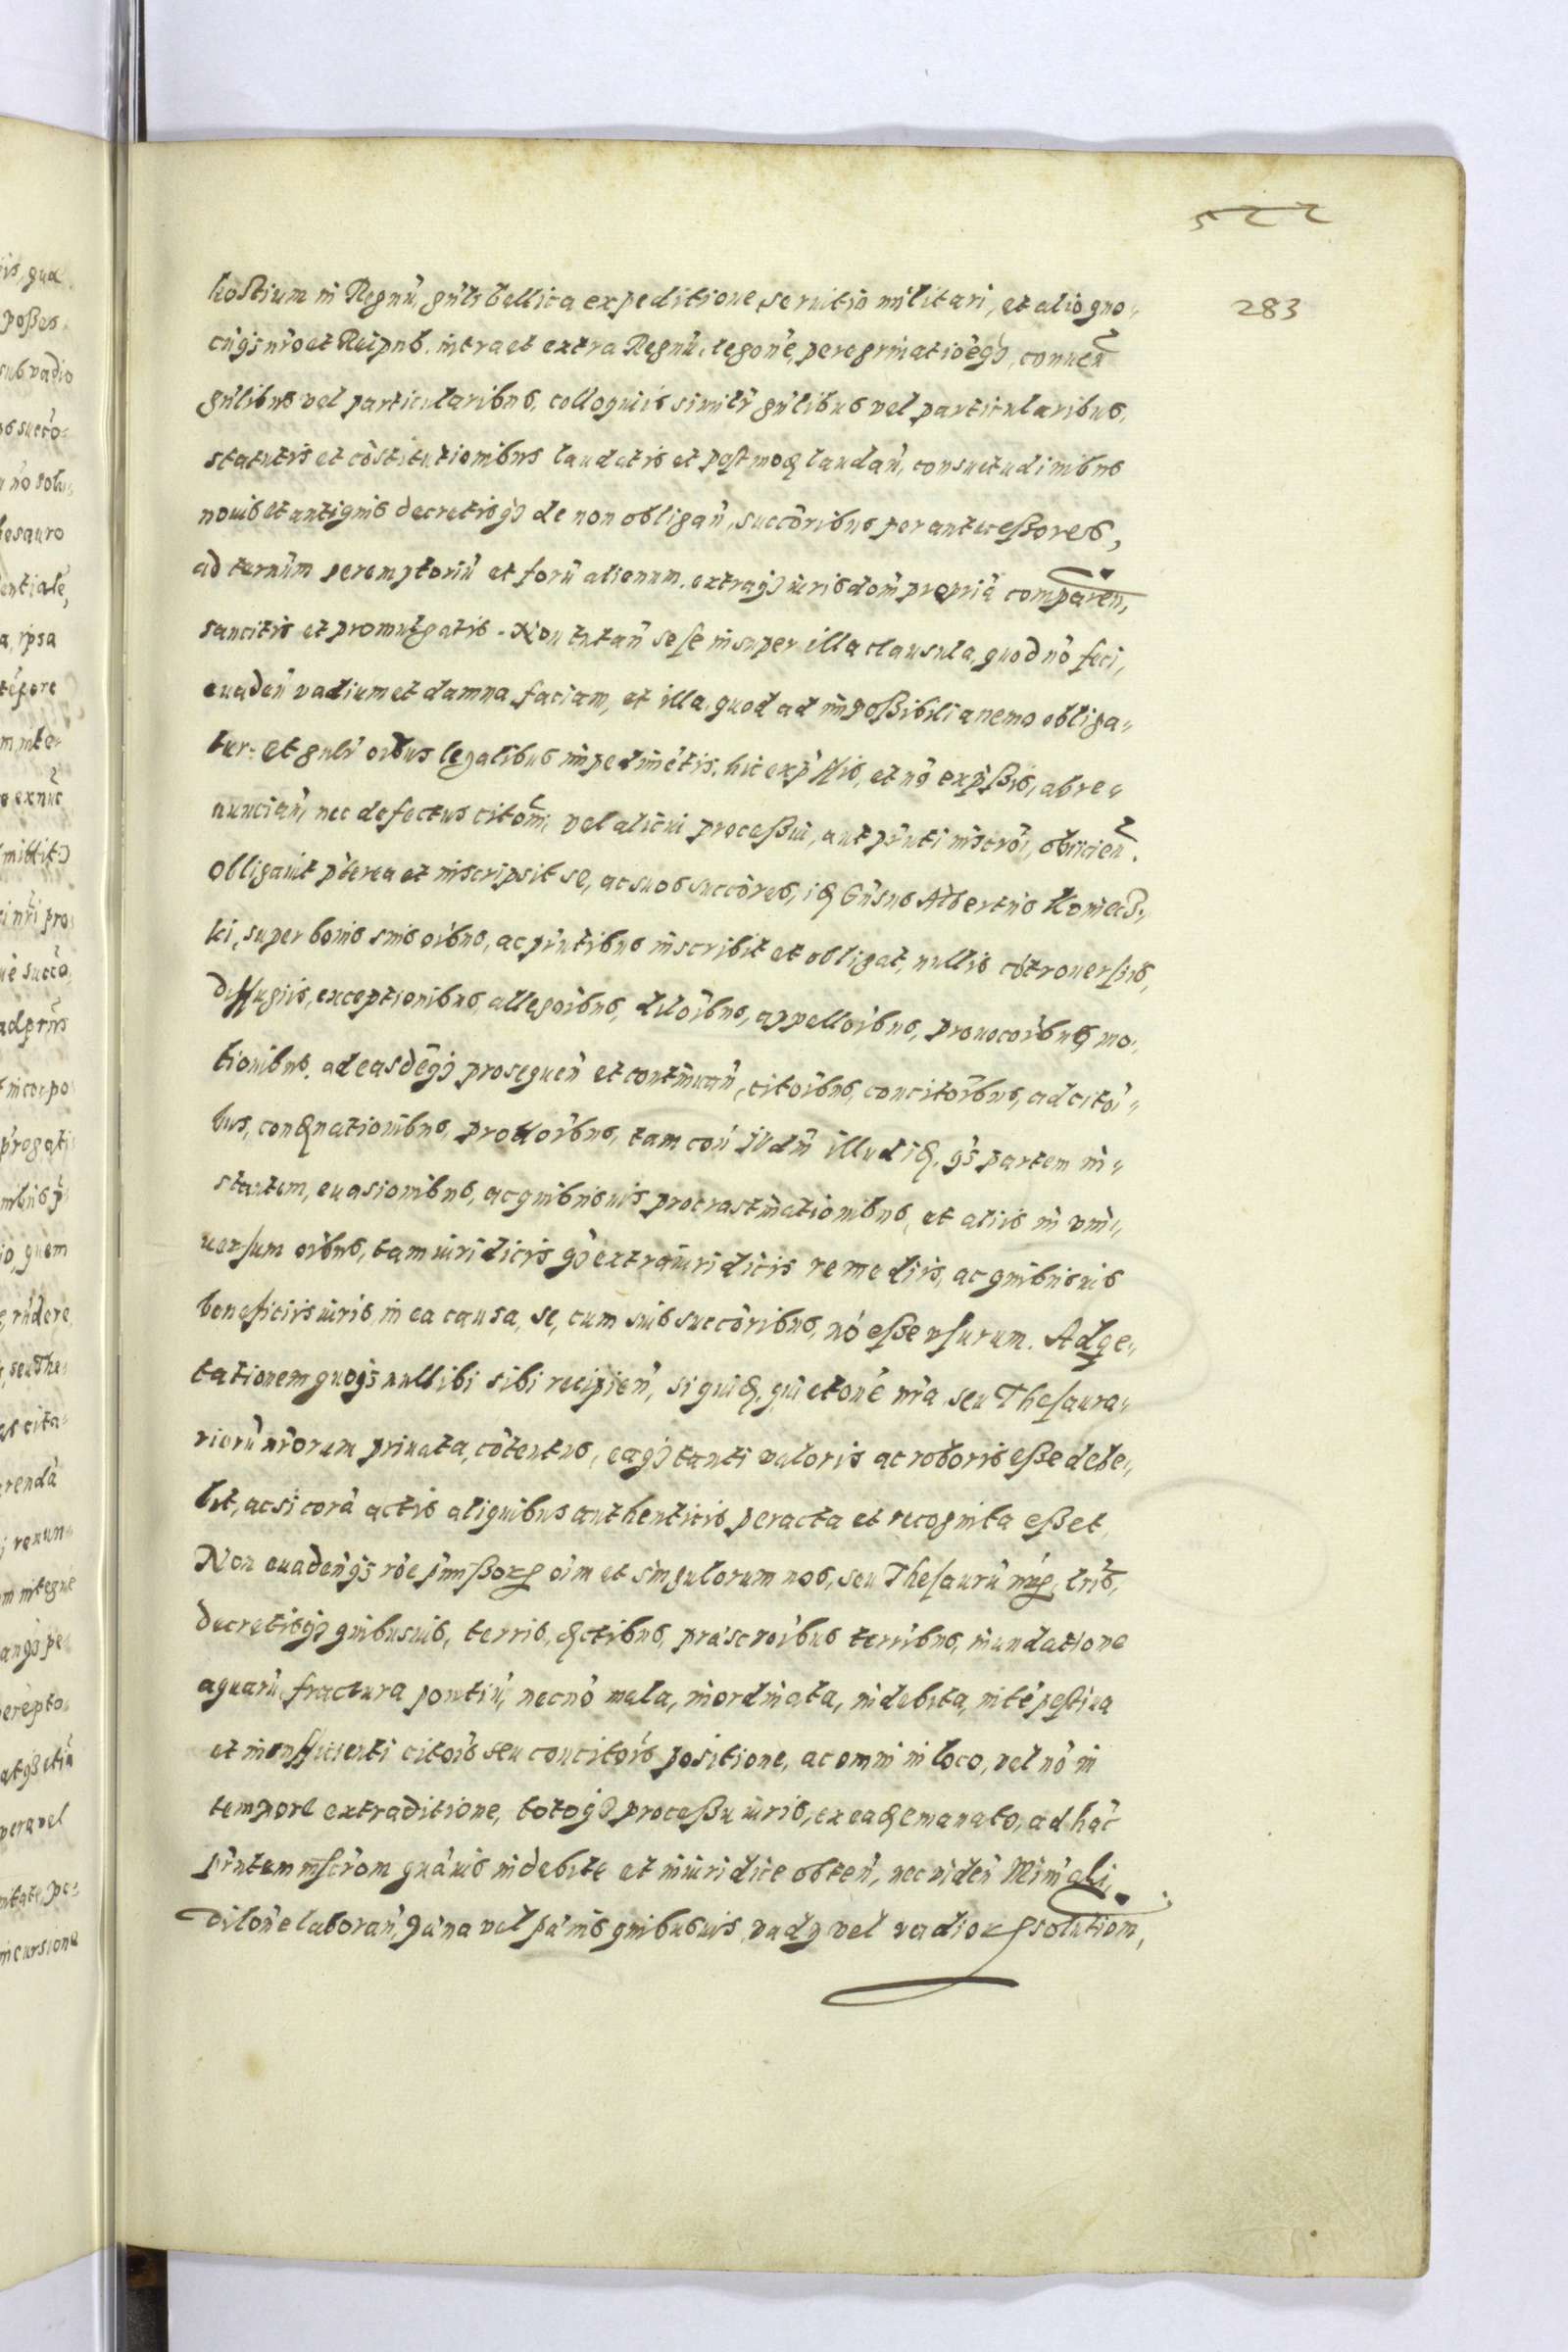 522
283
hostium in Regnũ, gñli bellica expeditione servitio militari, et alio quo-
cũqȝ nro et Reipub. intra et extra Regnũ, legonẽ, peregrinatiõeqȝ, conuen̄
gñlibus vel particularibus, colloquiis similr gñlibus vel particularibus,
statutis et cõstitutionibus laudatis et postmodũ laudan̄, consuetudinibus
nouis et antiquis decretisqȝ de non obligan̄, succõribus per antecessores,
ad termim peremptoriũ et forũ alienum, extraqȝ iurisdom̄ propriã comparen̄,
sancitis et promulgatis. Non tutan̄ sese insuper illa clausula, quod nõ feci,
euaden̄ vadium et damna faciam, et illa, quod ad impossibilia nemo obliga-
tur: et gñlr oibus legalibus impedimẽtis, hic exp̃ssis, et nõ exp̃ssis, abre-
nuncian̄, nec defectus citom̃, vel alicui processui, aut p̃nti inscrõi, obiicien̄.
Obligauit p̃terea et inscripsit se, ac suos succõres, idem Gñsus Albertus
ki, super bonis suis oibus, ac p̃ntibus inscribit et obligat, nullis cõtrouersiis,
diffugiis, exceptionibus, allegõibus, dilõibus, appellõibus, prouocõibus mo-
tionibus, ad easdẽqȝ prosequen̄ et continuan̄, citõibus, concitõibus, adcitõi-
bus, condemnationibus, tam illud quã partem in-
stantem, euasionibus, ac quibusuis procrastinationibus, et aliis in vni-
uersum oibus, tam iuridicis qȝ extraiuridicis remediis, ac quibusuis
beneficiis iuris, in ea causa, se, cum suis succõribus, nõ esse vsurum. Adqe-
tationem quoqȝ nullibi sibi recipien̄, siquidem quietonẽ nrã seu Thesaura-
riorũ nrorum priuata, cõtentus, eaqȝ tanti valoris ac roboris esse debe-
bit, ac si corã actis aliquibus authenticis peracta et recognita esset,
Non euadenqȝ rõe p̃missorum oim et singulorum nos, seu Thesaurũ nrũ, lris,
decretisqȝ quibusuis, terris, dictibus, præscrõibus terribus, inundatione
aquarũ, fractura pontiũ, necnõ mala, inordinata, indebita, intẽpestiua
et insufficienti citõis seu concitõis positione, ac omni in loco, vel nõ in
tempore extraditione, totoqȝ processu iuris, ex eadem emanato, ad hãc
p̃ntem inscrõm quãuis indebite et iniuridice obten̄, nec viden̄
dilonẽ laboran̄, pæna vel pænis quibusuis, vadij vel vadiorum solution̄,